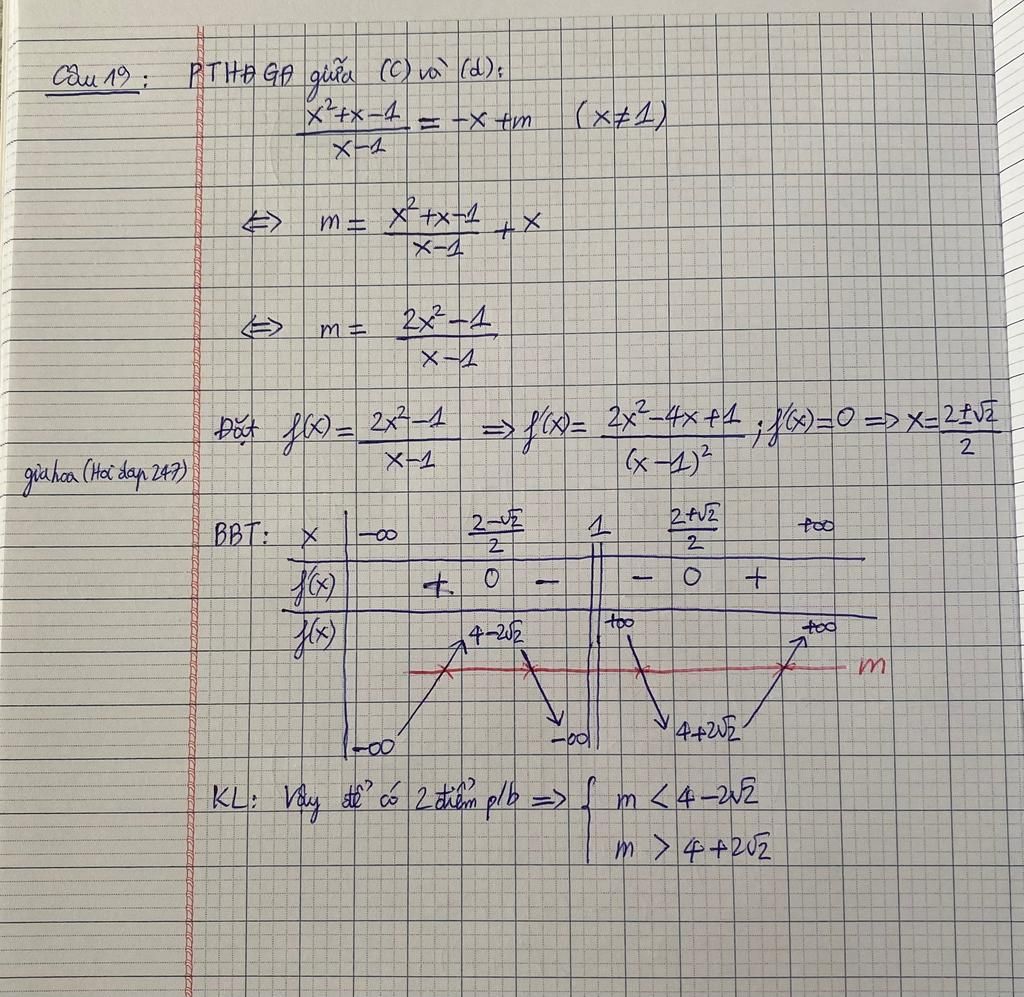 Câu 19: PTHĐGĐ giữa (C) và (d):
x²+x-1/x-1 = -x+m (x≠1)
⇔ m = x²+x-1/x-1 + x
⇔ m = 2x²-1/x-1
Đặt f(x) = 2x²-1/x-1 ⇒ f'(x) = 2x²-4x+1/(x-1)² ; f'(x)=0 ⇒ x = 2±√2/2
gia hoa (Hoi dap 247)
BBT: x -∞ 2-√2/2 1 2+√2/2 +∞
f'(x) + 0 - - 0 +
f(x) 4-2√2 +∞ +∞
m
-∞ -∞ 4+2√2
KL: Vậy để có 2 điểm p/b ⇒ { m < 4-2√2
m > 4+2√2